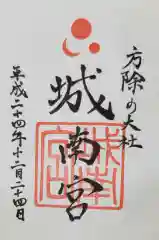 方除の大社
城南宮
平成二十四年十二月二十四日